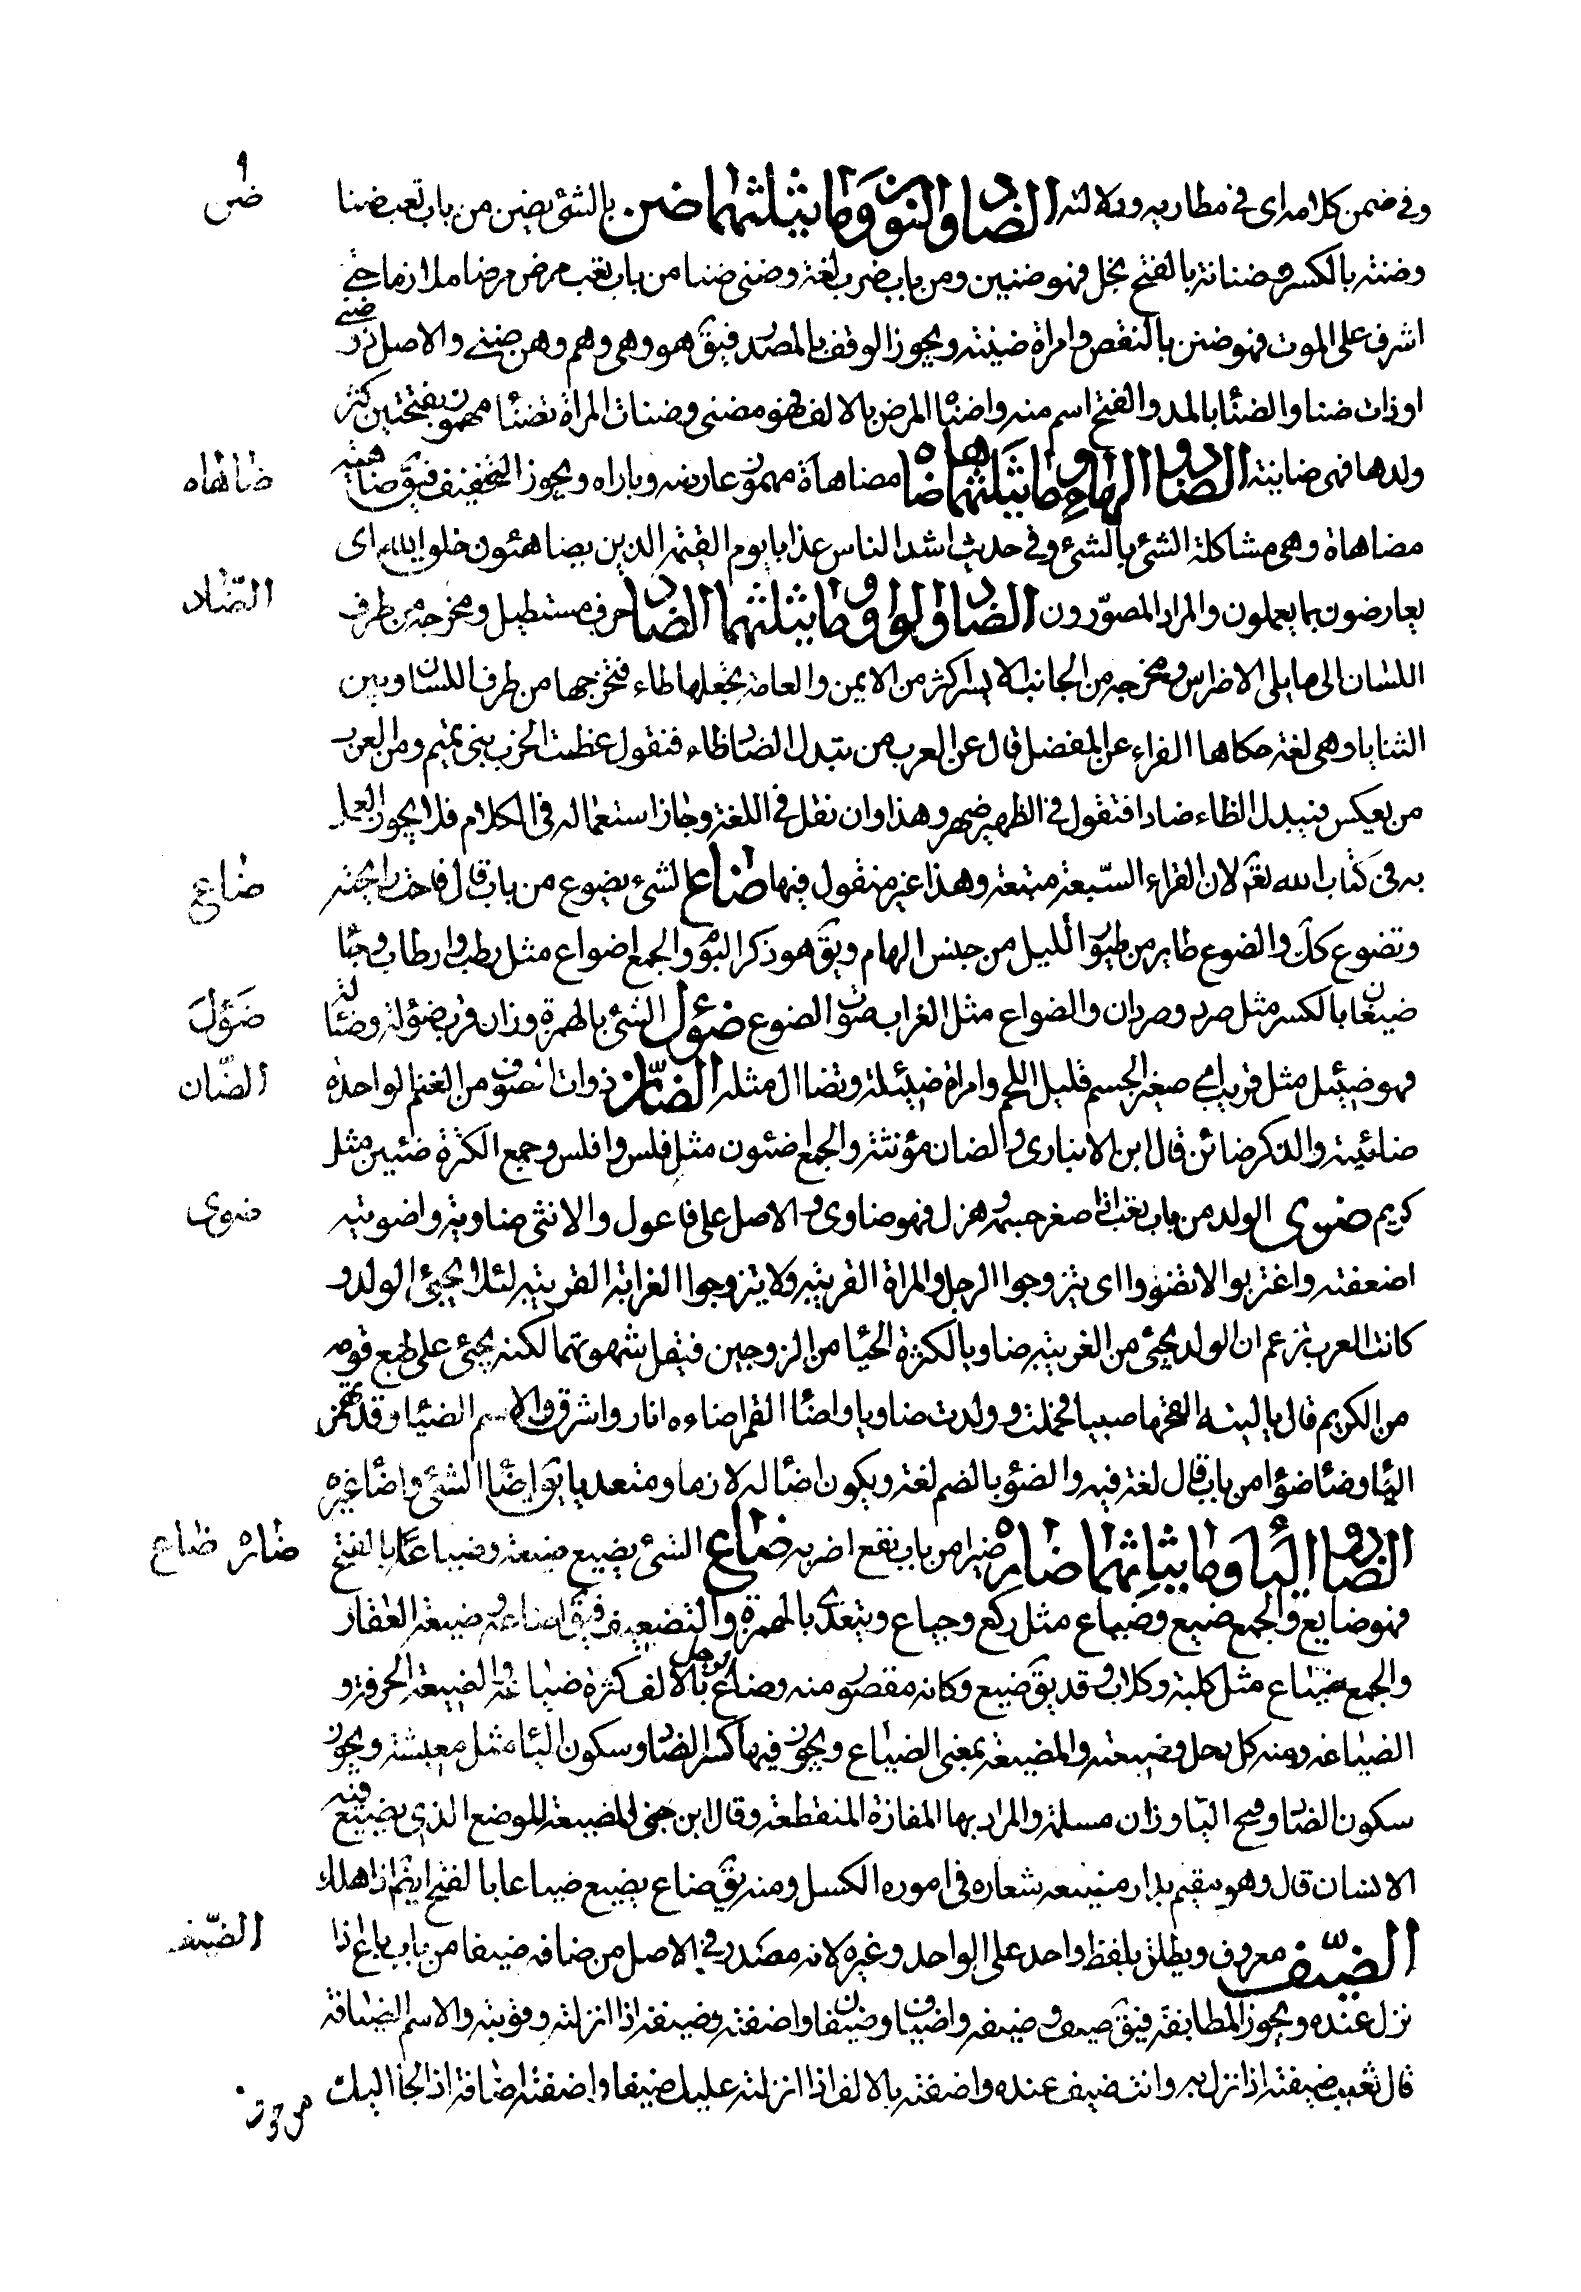 وفي ضمن كلامه اى في مطاويه ودلالته الضاد والنون وما يثلثهما ضن بالشئ يضن من باب تعب ضنا
ضن
وضنة بالكسر وضنانة بالفتح بخل فهو ضنين ومن باب ضرب لغة وضنى ضنا من باب تعب مرض مرضا ملازما حتى
اشرف على الموت فهو ضنن بالنقص وامراة ضنيته ويجوز الوقف بالمصدر فيق هو وهى وهم وهن ضنى والاصل ذو ضنى
او ذات ضنا والضنا بالمد والفتح اسم منه واضناه المرض بالالف فهو مضنى وضنات المراة تضنا مهموز بفتحتين كثر
ولدها فهى ضانية الضاد والهاء وما يثلثهما ضاهاه مضاهاة مهموز عارضه وباراه ويجوز التخفيف فيق ضاهيته
ضاهاه
مضاهاة وهى مشاكلة الشئ بالشئ وفي حديث اشد الناس عذابا يوم القيمة الذين يضاهئون خلق الله اى
يعارضون بما يعملون والمراد المصورون الضاد والواو وما يثلثهما الضاد حرف مستطيل ومخرجه من طرف
الضّاد
اللسان الى ما يلى الاضراس ومخرجه من الجانب الايسر اكثر من الايمن والعامة تجعلها طاء فتخرجها من طرف اللسان وبين
الثنايا وهى لغة حكاها الفراء عن المفضل قال عن العرب من يبدل الضاد ظاء فنقول عظت الحرب بنى تميم ومن العرب
من يعكس فيبدل الظاء ضادا فتقول في الظهر ضهر وهذا وان نقل في اللغة وجاز استعماله في الكلام فلا يجوز العمل
به في كتاب الله تعم لان القراء السّبعة متبعة وهذا غير منقول فيها ضاع الشئ يضوع من باب قال فاحت رايحته
ضاع
وتضوع كل والضوع طاير من طير الليل من جنس الهام ويق هو ذكر البوم والجمع اضواع مثل رطب وارطاب وجا
ضيعان بالكسر مثل صرد وصردان والضواع مثل الغراب صوت الضوع ضؤل الشئ بالهمزة وزان قرب ضؤلة وضئالة
ضَؤلَ
فهو ضئيل مثل قريب اى صغير الجسم قليل اللحم وامراة ضئيلة وتضاال مثله الضّان ذوات الصوف من الغنم الواحدة
الضّان
ضائينة والذكر ضائن قال ابن الانبارى والضان مؤنثة والجمع اضئون مثل فلس وافلس وجمع الكثرة ضئين مثل
كريم ضوى الولد من باب تعب اذا صغر جسمه وهزل فهو ضاوى والاصل على فاعول والانثى ضاوية واضويته
ضوى
اضعفته واغتربوا لا تضووا اى يتزوجوا الرجل والمراة الغريبة ولا يتزوجوا القرابة القريبة لئلا يجئ الولد و
كانت العرب تزعم ان الولد يجئ من القريبة ضاويا لكثرة الحيا من الزوجين فيقل شهوتهما لكنه يجئ على طبع قومه
من الكريم قال ياليته القحها صبيا فحملت وولدت ضاويا واضئا القمر اضاءه انار واشرق والاسم الضيا وقد تهمز
اليا وضئا ضؤا من باب قال لغة فيه والضؤ بالضم لغة ويكون اضاله لازما ومتعديا يق اضئا الشئ واضائا غيره
الضاد واليا وما يثلثهما ضاره ضيرا من باب نفع اضر به ضاع الشئ يضيع ضيعة وضياعا بالفتح
ضاره ضاع
فهو ضايع والجمع ضيع وضياع مثل ركع وجياع ويتعدى بالهمزة والتضعيف فيق اضاعه وضيعه والضيعة العقار
والجمع ضياع مثل كلبة وكلاب وقد يق ضيع وكانه مقصور منه واضاع الرجل بالالف كثرة ضياعه والضيعة الحرفة و
الضياعة ومنه كل رجل وضيعته والمضيعة بمعنى الضياع ويجوز فيها كسر الضاد وسكون اليا مثل معيشة ويجوز
سكون الضاد وفتح اليا وزان مسلمة والمراد بها المفازة المنقطعة وقال ابن جنى المضيعة للموضع الذى يضيع فيه
الانسان قال وهو مقيم بدار مضيعة شعاره في اموره الكسل ومنه يق ضاع يضيع ضياعا بالفتح ايضم اذا هلك
الضّيف معروف ويطلق بلفظ واحد على الواحد وغيره لانه مصدر في الاصل من ضافه ضيفا من باب باع اذا
الضّيف
نزل عنده ويجوز المطابقة فيق ضيف وضيفه واضياف وضيفان واضفته وضيفته اذا انزلته وقريته والاسم الضيافة
قال ثعلب ضيفته اذا نزل به وانت ضيف عنده واضفته بالالف اذا انزلته عليك ضيفا واضفته اضافة اذا لجا اليك
من خوف